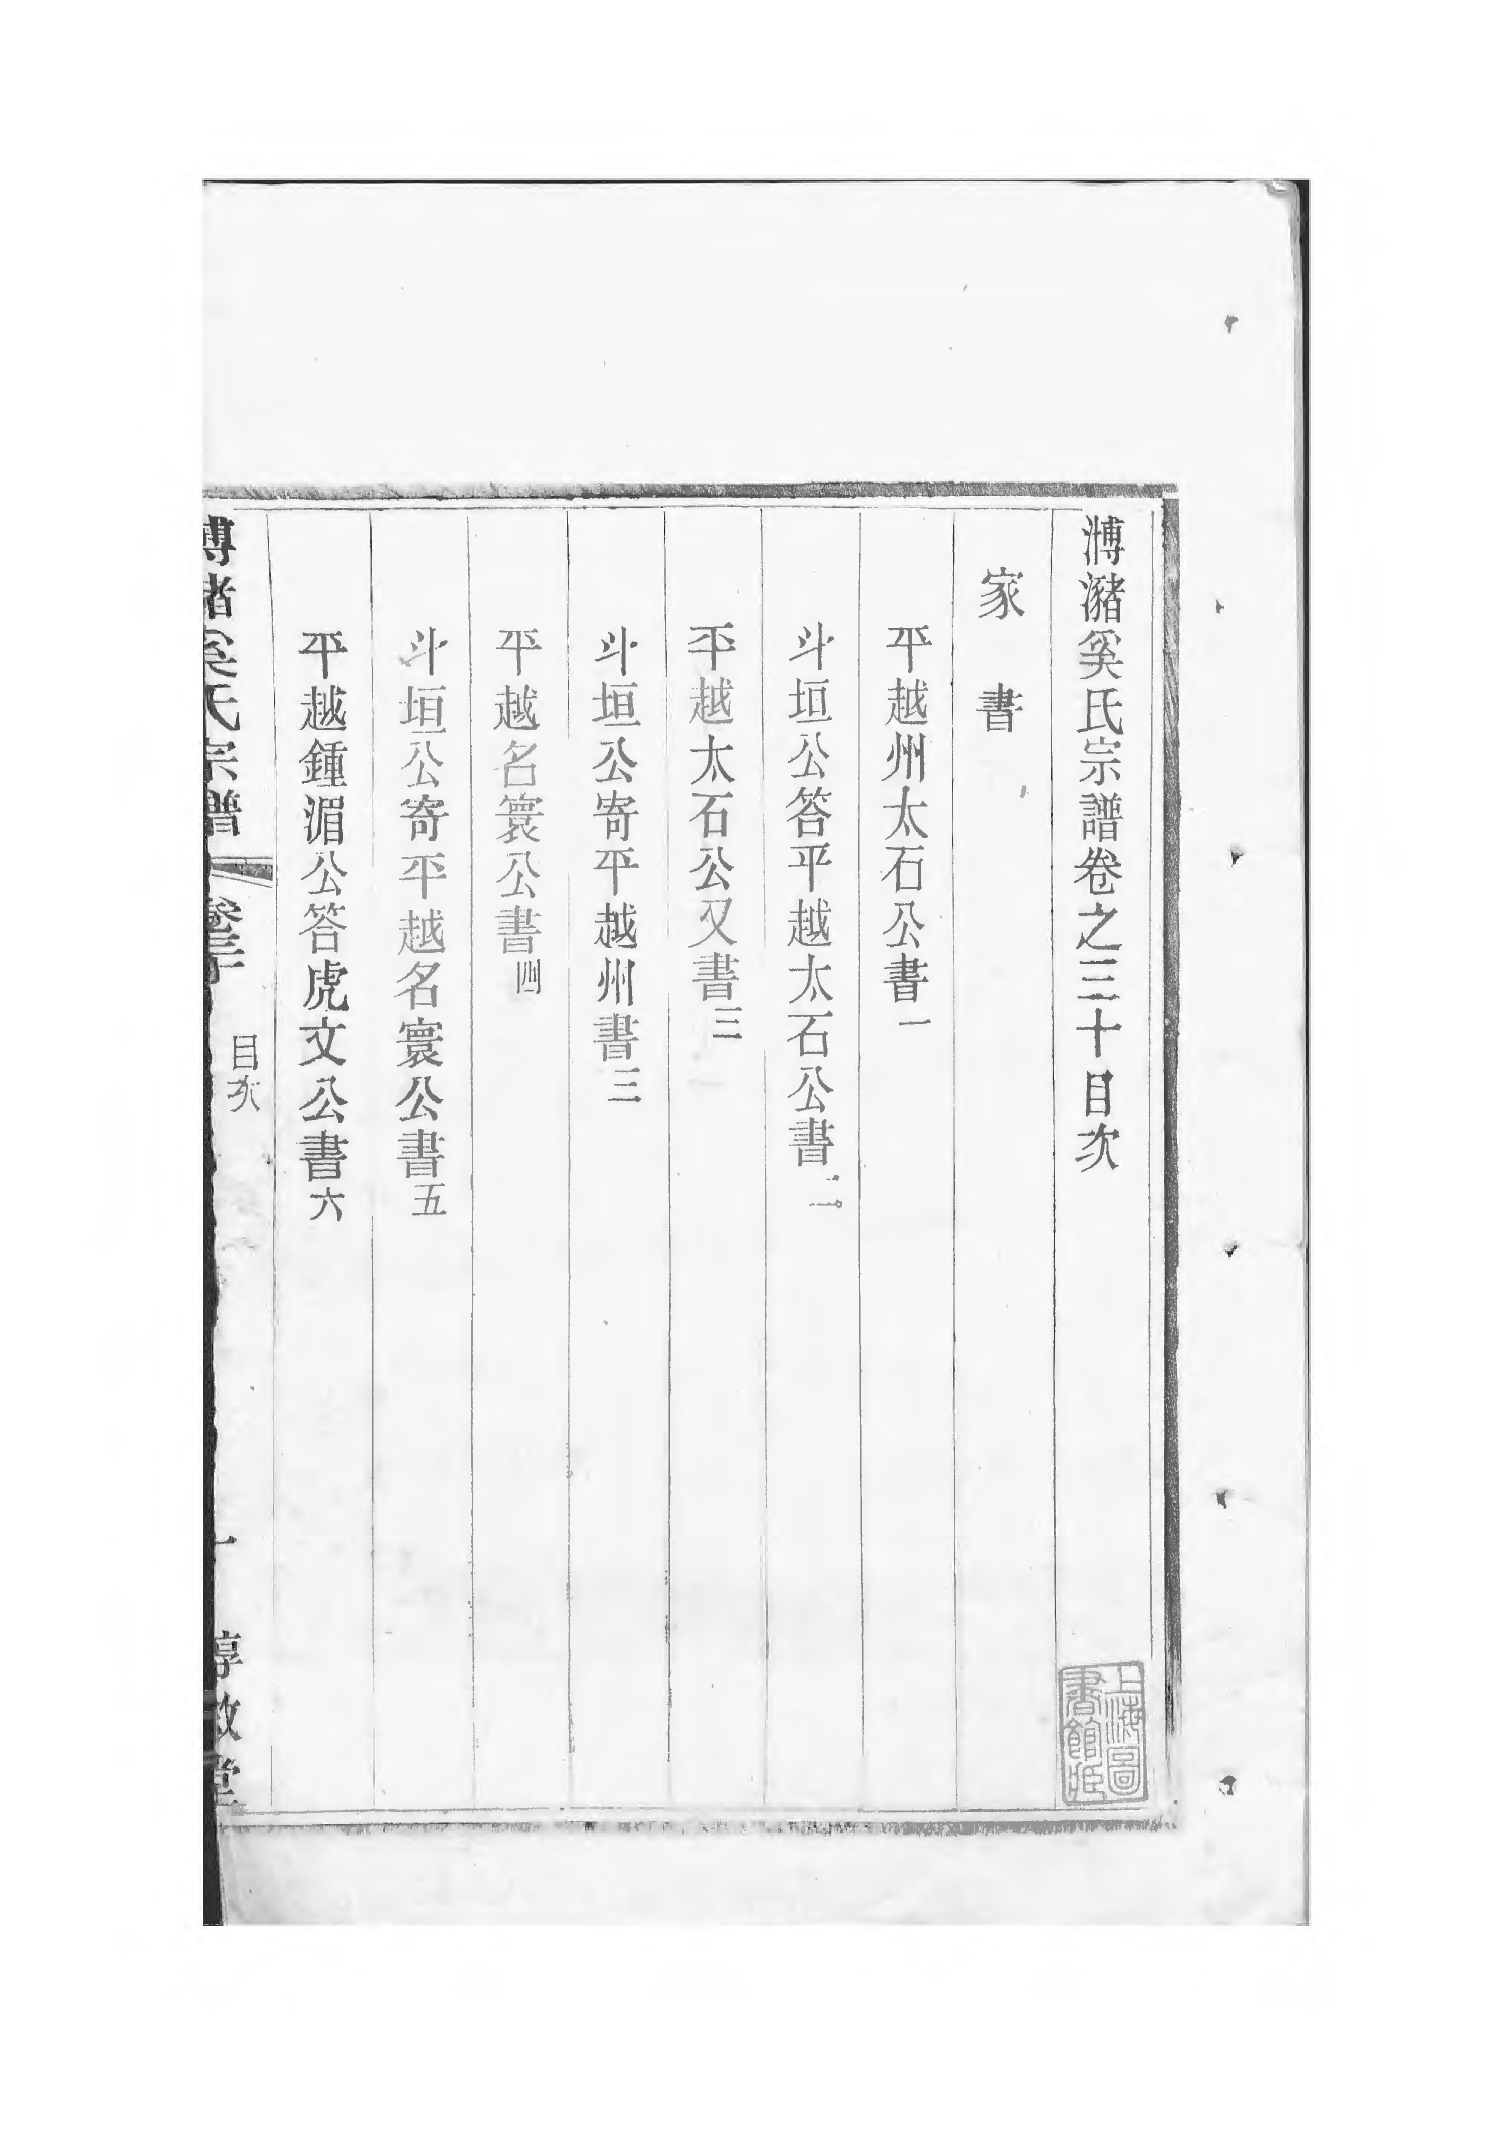 溥瀦奚氏宗譜卷之三十目次
家書
平越州太石公書一
斗垣公答平越太石公書二
平越太石公又書三
斗垣公寄平越州書三
平越名寰公書四
斗垣公寄平越名寰公書五
平越鍾湄公答虎文公書六
溥瀦奚氏宗譜 卷三十 目次 一 惇敘堂
上海圖書館藏